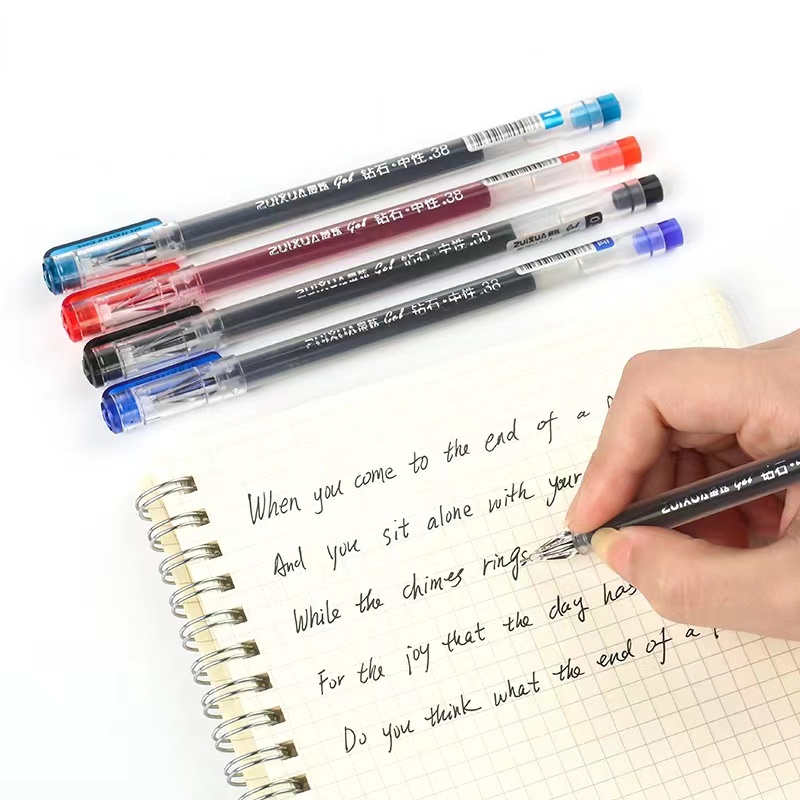 ZUIXUA Gel 钻石·中性.38
ZUIXUA Gel 钻石·中性.38
ZUIXUA Gel 钻石·中性.38
ZUIXUA Gel
ZUIXUA Gel 钻石·中性.38
When you come to the end of a
And you sit alone with your
ZUIXUA Gel 钻石
While the chimes rings
For the joy that the day has
Do you think what the end of a